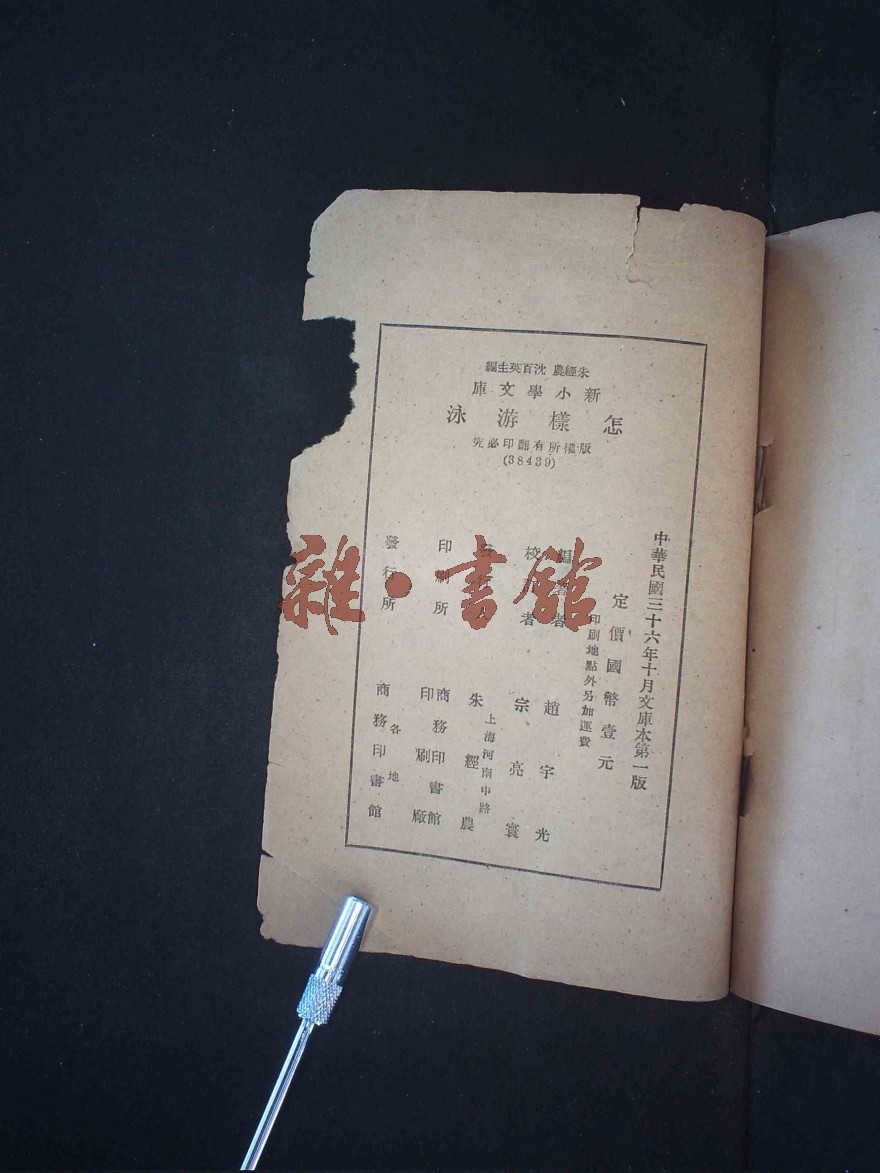 朱經農 沈百英主編
新小學文庫
怎樣游泳
版權所有翻印必究
(38439)
中華民國三十六年十月文庫本第一版
定價國幣壹元
印刷地點外另加運費
編著者 趙宇光
校 者 宗亮寰
朱經農
上海河南中路
印刷所 商務印書館
印刷廠
發行所 各地
商務印書館
雜·書館